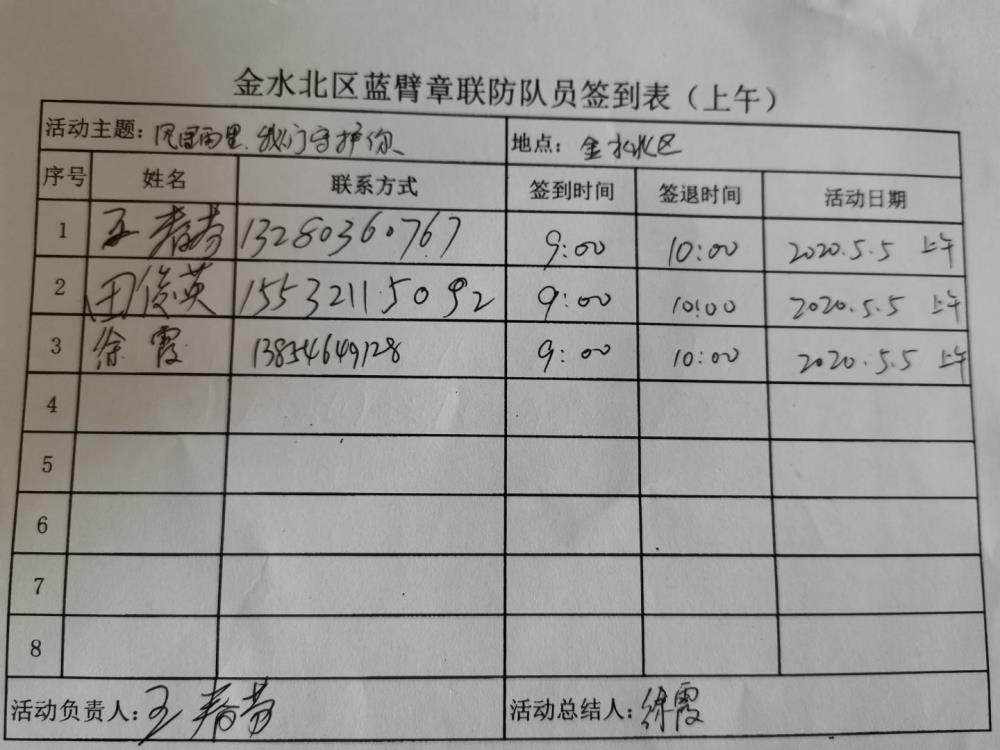 金水北区蓝臂章联防队员签到表（上午）
活动主题：风里雨里、我们守护你、 地点：金水北区
序号 姓名 联系方式 签到时间 签退时间 活动日期
1 王春芳 13280360767 9:00 10:00 2020.5.5 上午
2 田俊英 15532115092 9:00 10:00 2020.5.5 上午
3 徐霞 13854649128 9:00 10:00 2020.5.5 上午
4
5
6
7
8
活动负责人：王春芳 活动总结人：徐霞